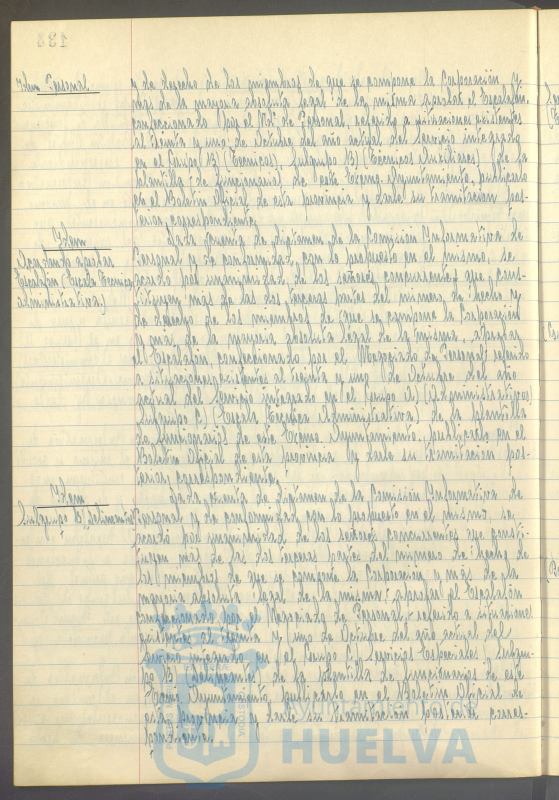 133
Idem Personal
y de derecho de los miembros de que se compone la Corporación y
más de la mayoría absoluta legal de la misma aprobar el Escalafón
confeccionado por el Ndo. de Personal, referido a situaciones existentes
al treinta y uno de Octubre del año actual del Servicio integrado
en el Grupo B) (Técnicos) Subgrupo B) (Técnicos Auxiliares) de la
plantilla de funcionarios de este Excmo. Ayuntamiento, publicarlo
en el Boletín Oficial de esta provincia y darle su tramitación pos-
terior correspondiente.
Idem
aprobar
Escalafón (Escala Técnico
administrativa)
Dada cuenta de dictamen de la Comisión Informativa de
Personal y de conformidad con lo propuesto en el mismo, se
acordó por unanimidad de los señores concurrentes que cons-
tituyen más de las dos terceras partes del número de hecho y
de derecho de los miembros de que se compone la Corporación
y más de la mayoría absoluta legal de la misma, aprobar
el Escalafón confeccionado por el Negociado de Personal referido
a situaciones existentes al treinta y uno de Octubre del año
actual del Servicio integrado en el Grupo A) (Administrativos)
Subgrupo C) (Escala Técnica Administrativa) de la plantilla
de funcionarios de este Excmo. Ayuntamiento, publicarlo en el
Boletín Oficial de esta provincia y darle su tramitación pos-
terior correspondiente.
Idem
Subgrupo B) Delineantes
Dada cuenta de dictamen de la Comisión Informativa de
Personal y de conformidad con lo propuesto en el mismo, se
acordó por unanimidad de los señores concurrentes que consti-
tuyen más de las dos terceras partes del número de hecho de
los miembros de que se compone la Corporación y más de la
mayoría absoluta legal de la misma aprobar el Escalafón
confeccionado por el Negociado de Personal, referido a situaciones
existentes al treinta y uno de Octubre del año actual del
Servicio integrado en el Grupo C) Servicios Especiales, Subgru-
po B) Delineantes de la plantilla de funcionarios de este
Excmo. Ayuntamiento, publicarlo en el Boletín Oficial de
esta provincia y darle su tramitación posterior corres-
pondiente.
Ayuntamiento de
HUELVA